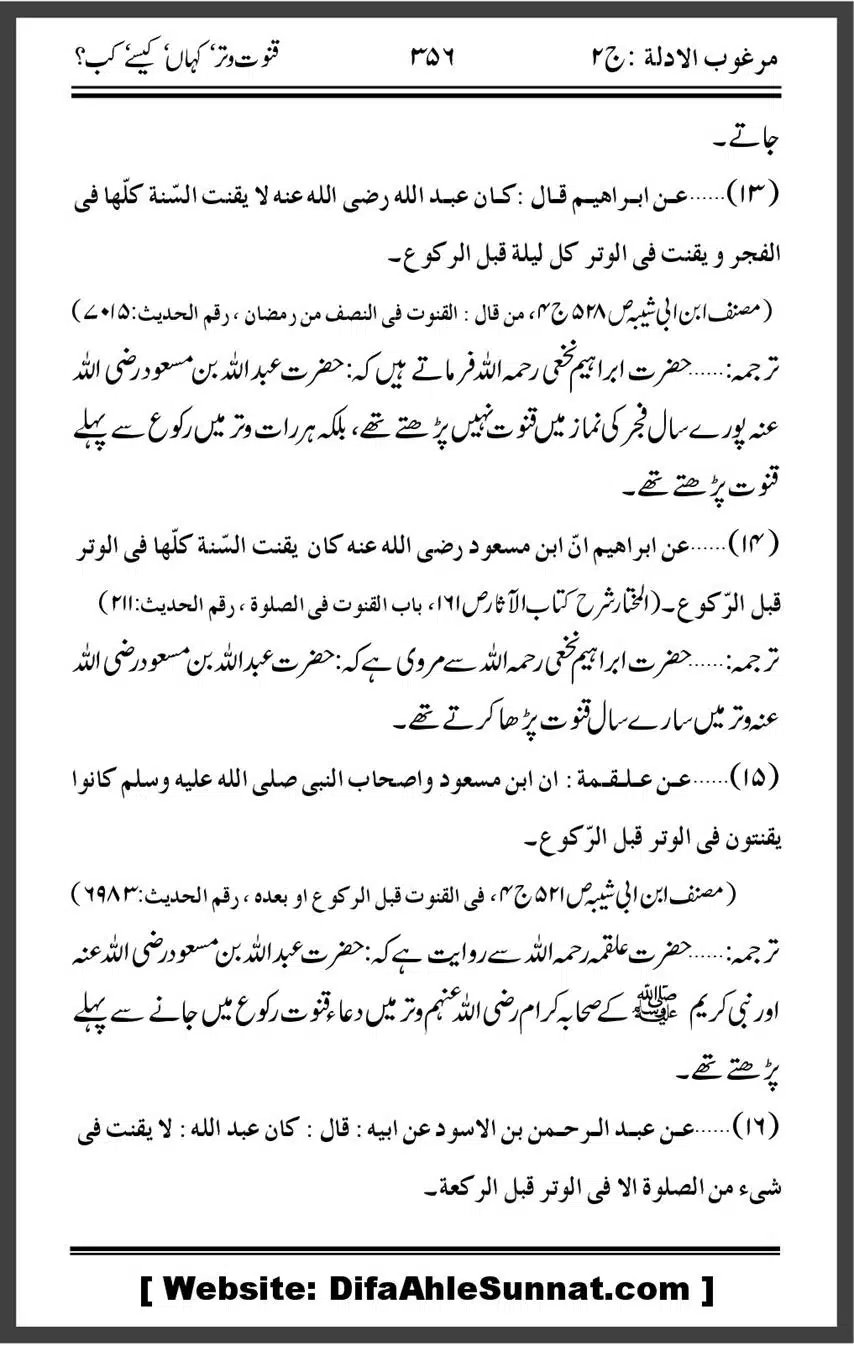 مرغوب الادلة : ج۲ ۳۵۶ قنوت وتر‘ کہاں‘ کیسے‘ کب؟
جاتے۔
(۱۳)……عن ابراهيم قال : كان عبد الله رضی الله عنه لا يقنت السّنة كلّها فی
الفجر و يقنت فی الوتر كل ليلة قبل الركوع۔
(مصنف ابن ابی شیبہ ص ۵۲۸ ج ۴، من قال : القنوت فی النصف من رمضان ، رقم الحديث:۷۰۱۵)
ترجمہ:……حضرت ابراہیم نخعی رحمہ اللہ فرماتے ہیں کہ: حضرت عبداللہ بن مسعود رضی اللہ
عنہ پورے سال فجر کی نماز میں قنوت نہیں پڑھتے تھے، بلکہ ہر رات وتر میں رکوع سے پہلے
قنوت پڑھتے تھے۔
(۱۴)……عن ابراهيم انّ ابن مسعود رضی الله عنه كان يقنت السّنة كلّها فی الوتر
قبل الرّكوع۔(المختار شرح کتاب الآثار ص ۱۶۱، باب القنوت فی الصلوة ، رقم الحديث:۲۱۱)
ترجمہ:……حضرت ابراہیم نخعی رحمہ اللہ سے مروی ہے کہ: حضرت عبداللہ بن مسعود رضی اللہ
عنہ وتر میں سارے سال قنوت پڑھا کرتے تھے۔
(۱۵)……عن علقمة : ان ابن مسعود واصحاب النبی صلی الله عليه وسلم كانوا
يقنتون فی الوتر قبل الرّكوع۔
(مصنف ابن ابی شیبہ ص ۵۲۱ ج ۴، فی القنوت قبل الركوع او بعده ، رقم الحديث:۶۹۸۳)
ترجمہ:……حضرت علقمہ رحمہ اللہ سے روایت ہے کہ: حضرت عبداللہ بن مسعود رضی اللہ عنہ
اور نبی کریم ﷺ کے صحابہ کرام رضی اللہ عنہم وتر میں دعاء قنوت رکوع میں جانے سے پہلے
پڑھتے تھے۔
(۱۶)……عن عبد الرحمن بن الاسود عن ابيه : قال : كان عبد الله : لا يقنت فی
شیء من الصلوة الا فی الوتر قبل الركعة۔
[ Website: DifaAhleSunnat.com ]